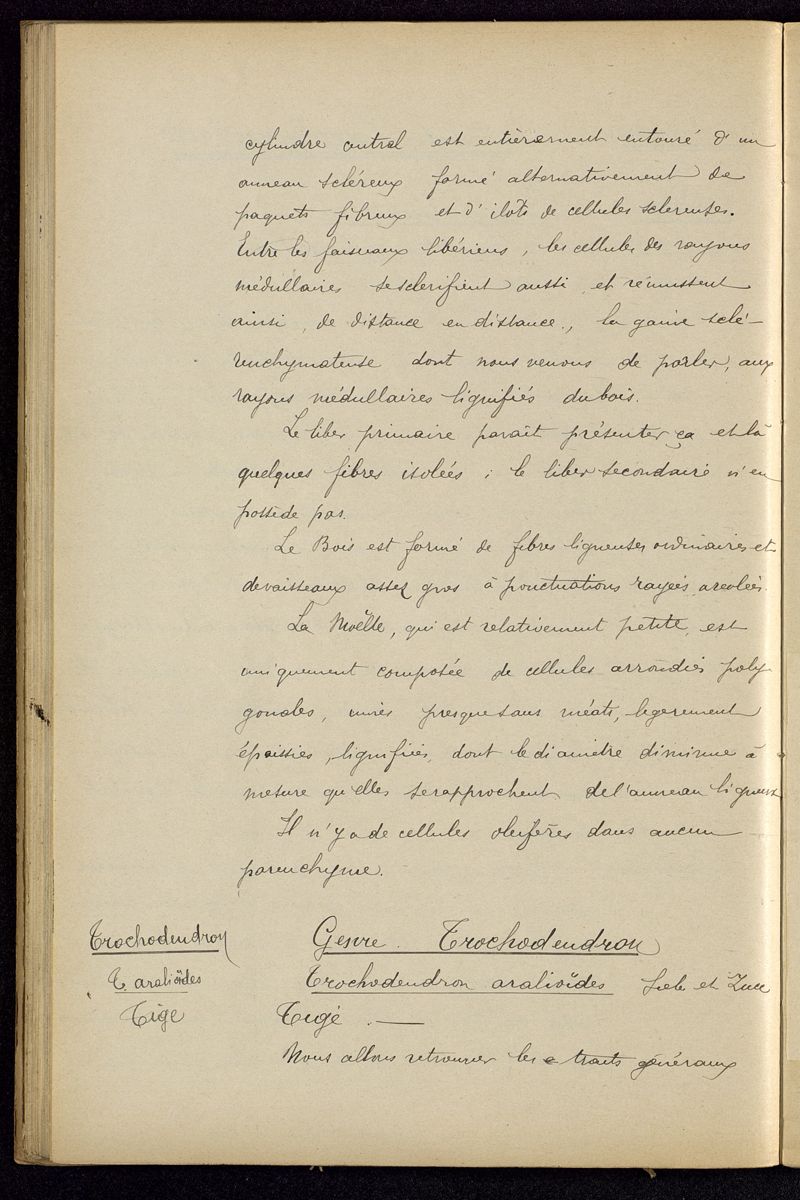 cylindre central est entièrement entouré d'un
anneau scléreux formé alternativement de
paquets fibreux et d'ilots de cellules sclereuses.
Entre les faisceaux libériens, les cellules des rayons
médullaires se sclerifient aussi et réunissent
ainsi, de distance en distance, la gaine sclé-
renchymateuse dont nous venons de parler, aux
rayons médullaires lignifiés du bois.
Le liber primaire paraît présenter ça et là
quelques fibres isolées ; le liber secondaire n'en
possède pas.
Le Bois est formé de fibres ligneuses ordinaires et
de vaisseaux assez gros à ponctuations rayées areolées.
La Moëlle, qui est relativement petite, est
uniquement composée de cellules arrondies poly
gonales, unies presque sans méats, legerement
épaissies, lignifiées, dont le diamètre diminue à
mesure qu'elles se rapprochent de l'anneau ligneux
Il n'y a de cellules oleifères dans aucun
parenchyme.
Trochodendron
T. aralioïdes
Tige
Genre. Trochodendron
Trochodendron aralioïdes Sieb et Zucc
Tige. —
Nous allons retrouver les traits généraux